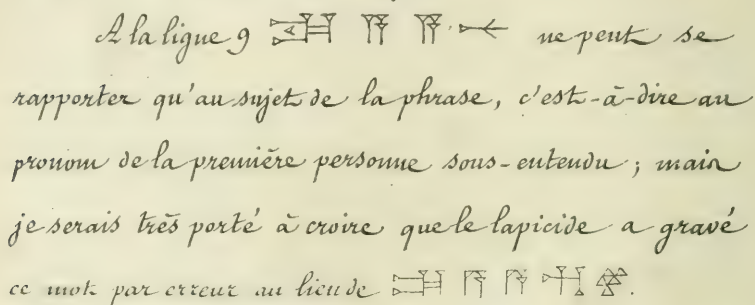 A la ligne 9 ne peut se
rapporter qu'au sujet de la phrase, c'est-à-dire au
pronom de la première personne sous-entendu; mais
je serais très porté à croire que le lapicide a gravé
ce mot par erreur au lieu de .